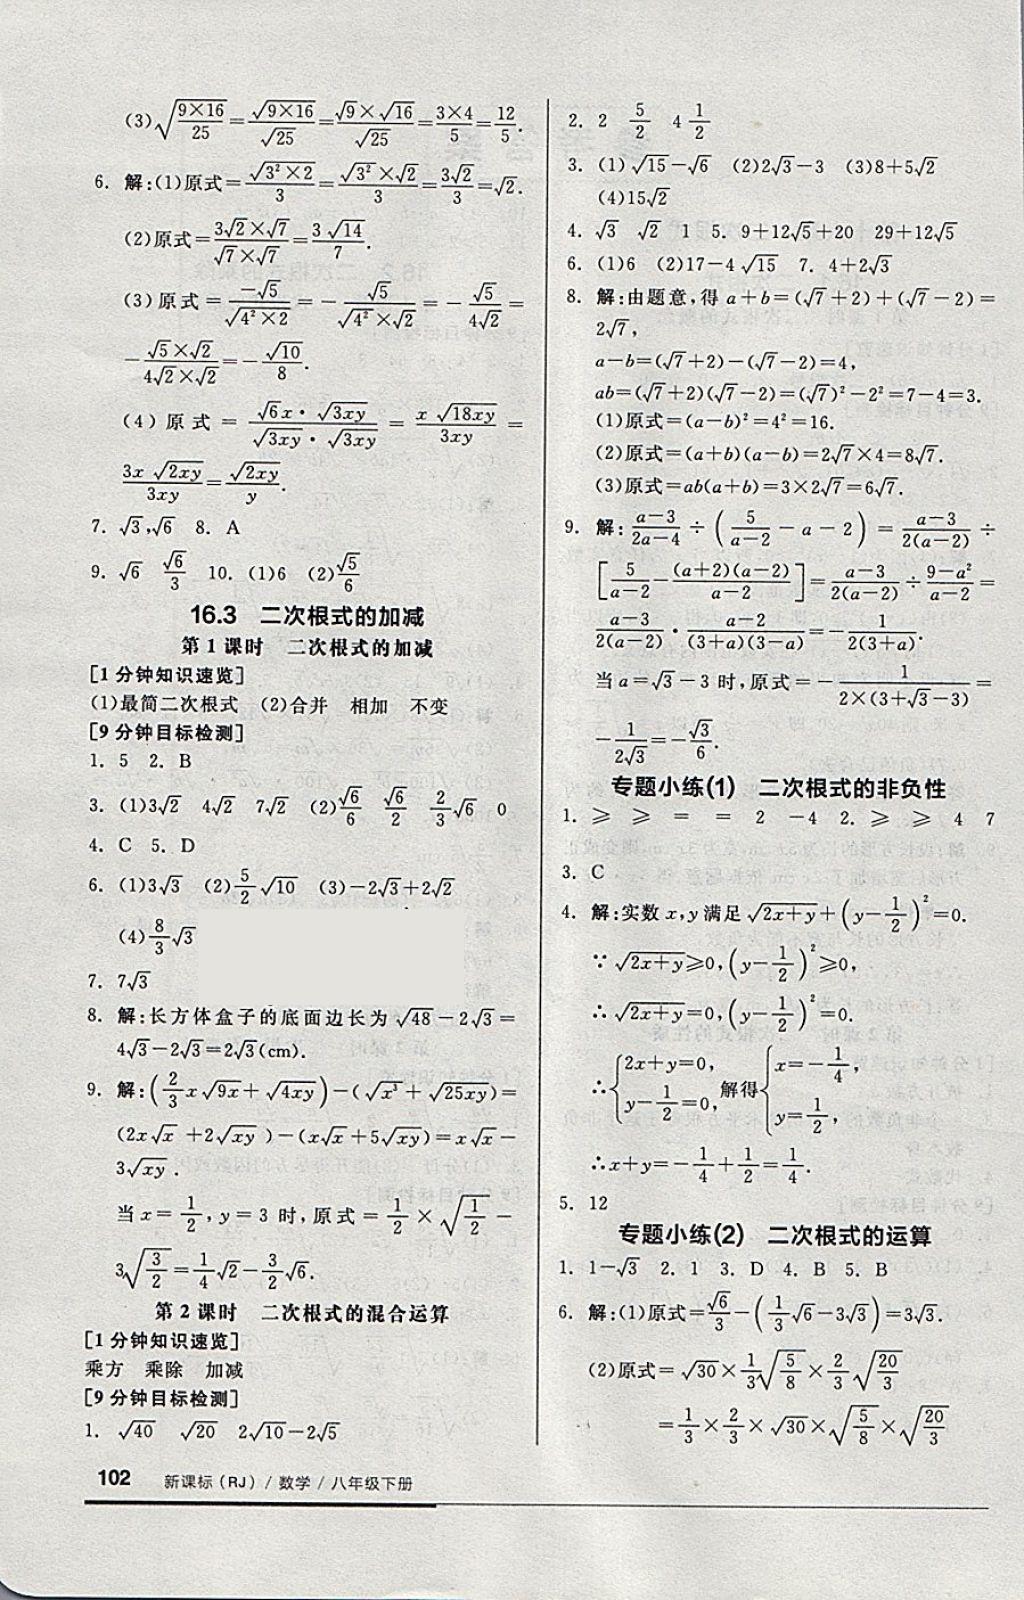 (3)√(9×16/25)=√(9×16)/√25=(√9×√16)/√25=(3×4)/5=12/5.
6. 解:(1)原式=√(3²×2)/3=(√3²×√2)/3=3√2/3=√2.
(2)原式=(3√2×√7)/(√7×√7)=3√14/7.
(3)原式=-√5/√(4²×2)=-√5/(√4²×√2)=-√5/(4√2)=
-(√5×√2)/(4√2×√2)=-√10/8.
(4)原式=(√6x·√3xy)/(√3xy·√3xy)=x√18xy/3xy=
3x√2xy/3xy=√2xy/y.
7. √3,√6 8. A
9. √6 √6/3 10. (1)6 (2)√5/6
16.3 二次根式的加减
第1课时 二次根式的加减
[1分钟知识速览]
(1)最简二次根式 (2)合并 相加 不变
[9分钟目标检测]
1. 5 2. B
3. (1)3√2 4√2 7√2 (2)√6/6 √6/2 2/3√6 0
4. C 5. D
6. (1)3√3 (2)5/2√10 (3)-2√3+2√2
(4)8/3√3
7. 7√3
8. 解:长方体盒子的底面边长为√48-2√3=
4√3-2√3=2√3(cm).
9. 解:(2/3x√9x+√4xy)-(√x³+√25xy)=
(2x√x+2√xy)-(x√x+5√xy)=x√x-
3√xy.
当x=1/2,y=3时,原式=1/2×√(1/2)-
3√(3/2)=1/4√2-3/2√6.
第2课时 二次根式的混合运算
[1分钟知识速览]
乘方 乘除 加减
[9分钟目标检测]
1. √40 √20 2√10-2√5
2. 2 5/2 4 1/2
3. (1)√15-√6 (2)2√3-3 (3)8+5√2
(4)15√2
4. √3 √2 1 5. 9+12√5+20 29+12√5
6. (1)6 (2)17-4√15 7. 4+2√3
8. 解:由题意,得a+b=(√7+2)+(√7-2)=
2√7,
a-b=(√7+2)-(√7-2)=4,
ab=(√7+2)(√7-2)=(√7)²-2²=7-4=3.
(1)原式=(a-b)²=4²=16.
(2)原式=(a+b)(a-b)=2√7×4=8√7.
(3)原式=ab(a+b)=3×2√7=6√7.
9. 解:(a-3)/(2a-4)÷(5/(a-2)-a-2)=(a-3)/(2(a-2))÷
[5/(a-2)-(a+2)(a-2)/(a-2)]=(a-3)/(2(a-2))÷(9-a²)/(a-2)=
(a-3)/(2(a-2))·(a-2)/((3+a)(3-a))=-1/(2(3+a)).
当a=√3-3时,原式=-1/(2×(3+√3-3))=
-1/(2√3)=-√3/6.
专题小练(1) 二次根式的非负性
1. ≥ ≥ = = 2 -4 2. ≥ ≥ 4 7
3. C
4. 解:实数x,y满足√(2x+y)+(y-1/2)²=0.
∵√(2x+y)≥0,(y-1/2)²≥0,
∴√(2x+y)=0,(y-1/2)²=0.
∴{2x+y=0, y-1/2=0, 解得{x=-1/4, y=1/2,
∴x+y=-1/4+1/2=1/4.
5. 12
专题小练(2) 二次根式的运算
1. 1-√3 2. 1 3. D 4. B 5. B
6. 解:(1)原式=√6/3-(1/3√6-3√3)=3√3.
(2)原式=√30×1/3√(5/8)×2/3√(20/3)
=1/3×2/3×√30×√(5/8)×√(20/3)
102 新课标(RJ)/数学/八年级下册